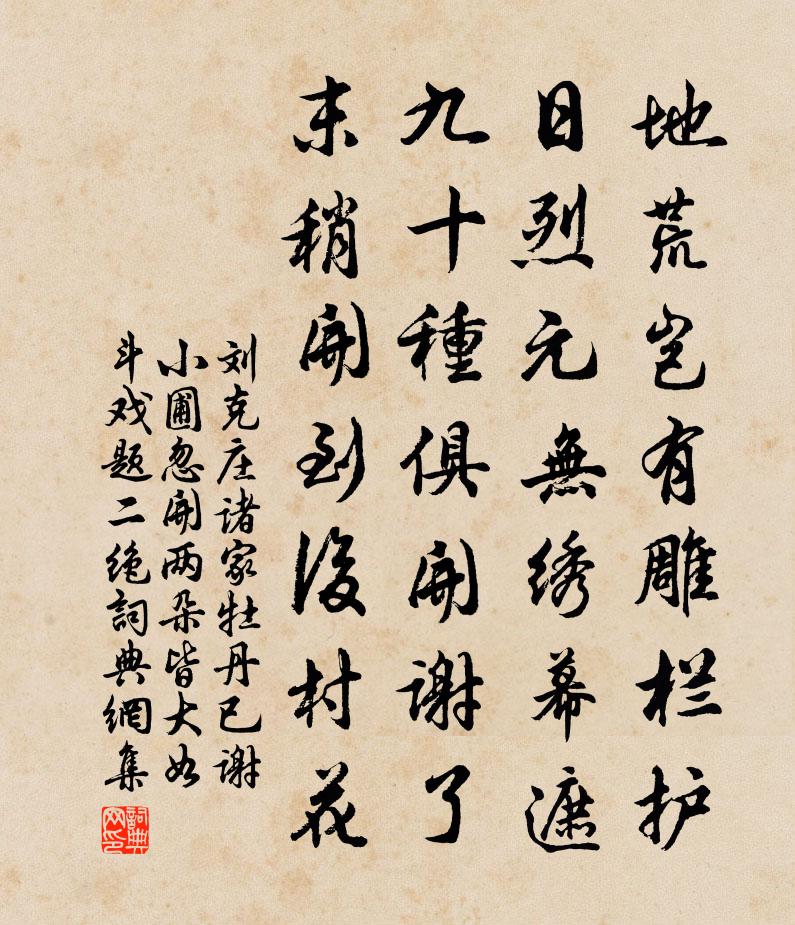 地荒岂有雕栏护
日烈元無绣幕遮
九十種俱開謝了
末稍開到後村花
刘克庄诸家牡丹已谢
小圃忽開两朵皆大如
斗戏题二绝詞典網集
詞典网印